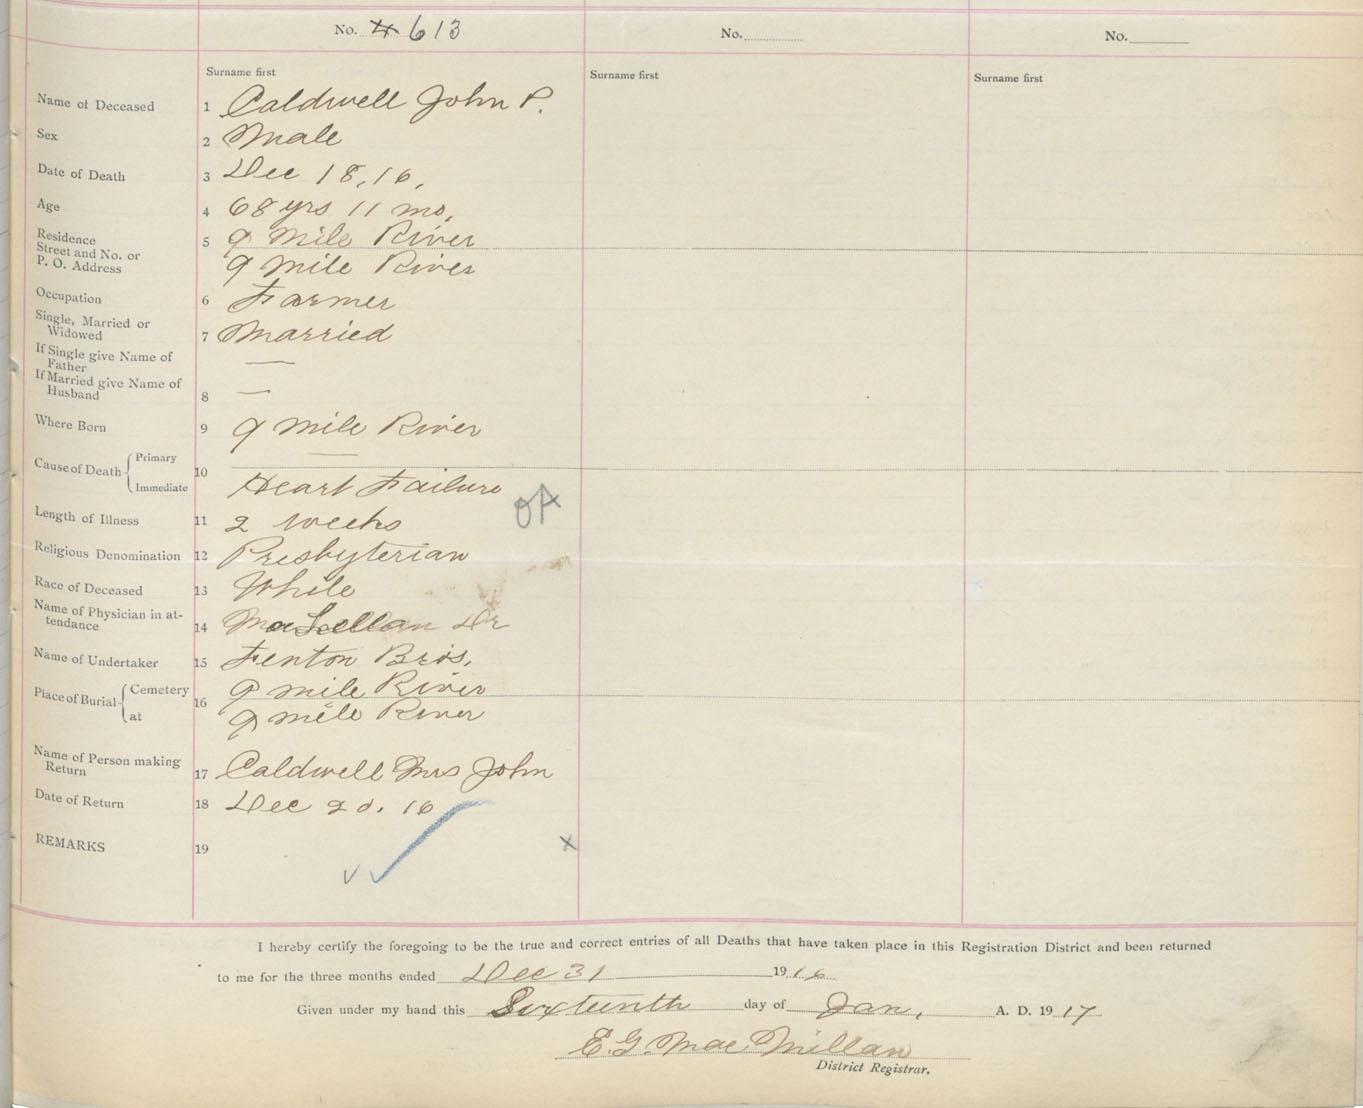 No. 4 613
No.
No.
Surname first
Surname first
Surname first
Name of Deceased 1 Caldwell John P.
Sex 2 Male
Date of Death 3 Dec 18, 16.
Age 4 68 yrs 11 mo.
Residence 5 9 mile River
Street and No. or
P. O. Address 9 mile River
Occupation 6 Farmer
Single, Married or
Widowed 7 Married
If Single give Name of
Father —
If Married give Name of
Husband 8 —
Where Born 9 9 mile River
Cause of Death { Primary —
10
Immediate Heart Failure
OA
Length of Illness 11 2 weeks
Religious Denomination 12 Presbyterian
Race of Deceased 13 White
Name of Physician in at-
tendance 14 MacLellan Dr
Name of Undertaker 15 Fenton Bros.
Place of Burial { Cemetery 16 9 mile River
at 9 mile River
Name of Person making
Return 17 Caldwell Mrs John
Date of Return 18 Dec 20. 16
REMARKS 19
x
I hereby certify the foregoing to be the true and correct entries of all Deaths that have taken place in this Registration District and been returned
to me for the three months ended Dec 31 1916
Given under my hand this Sixteenth day of Jan, A. D. 1917
E.G. MacMillan
District Registrar.